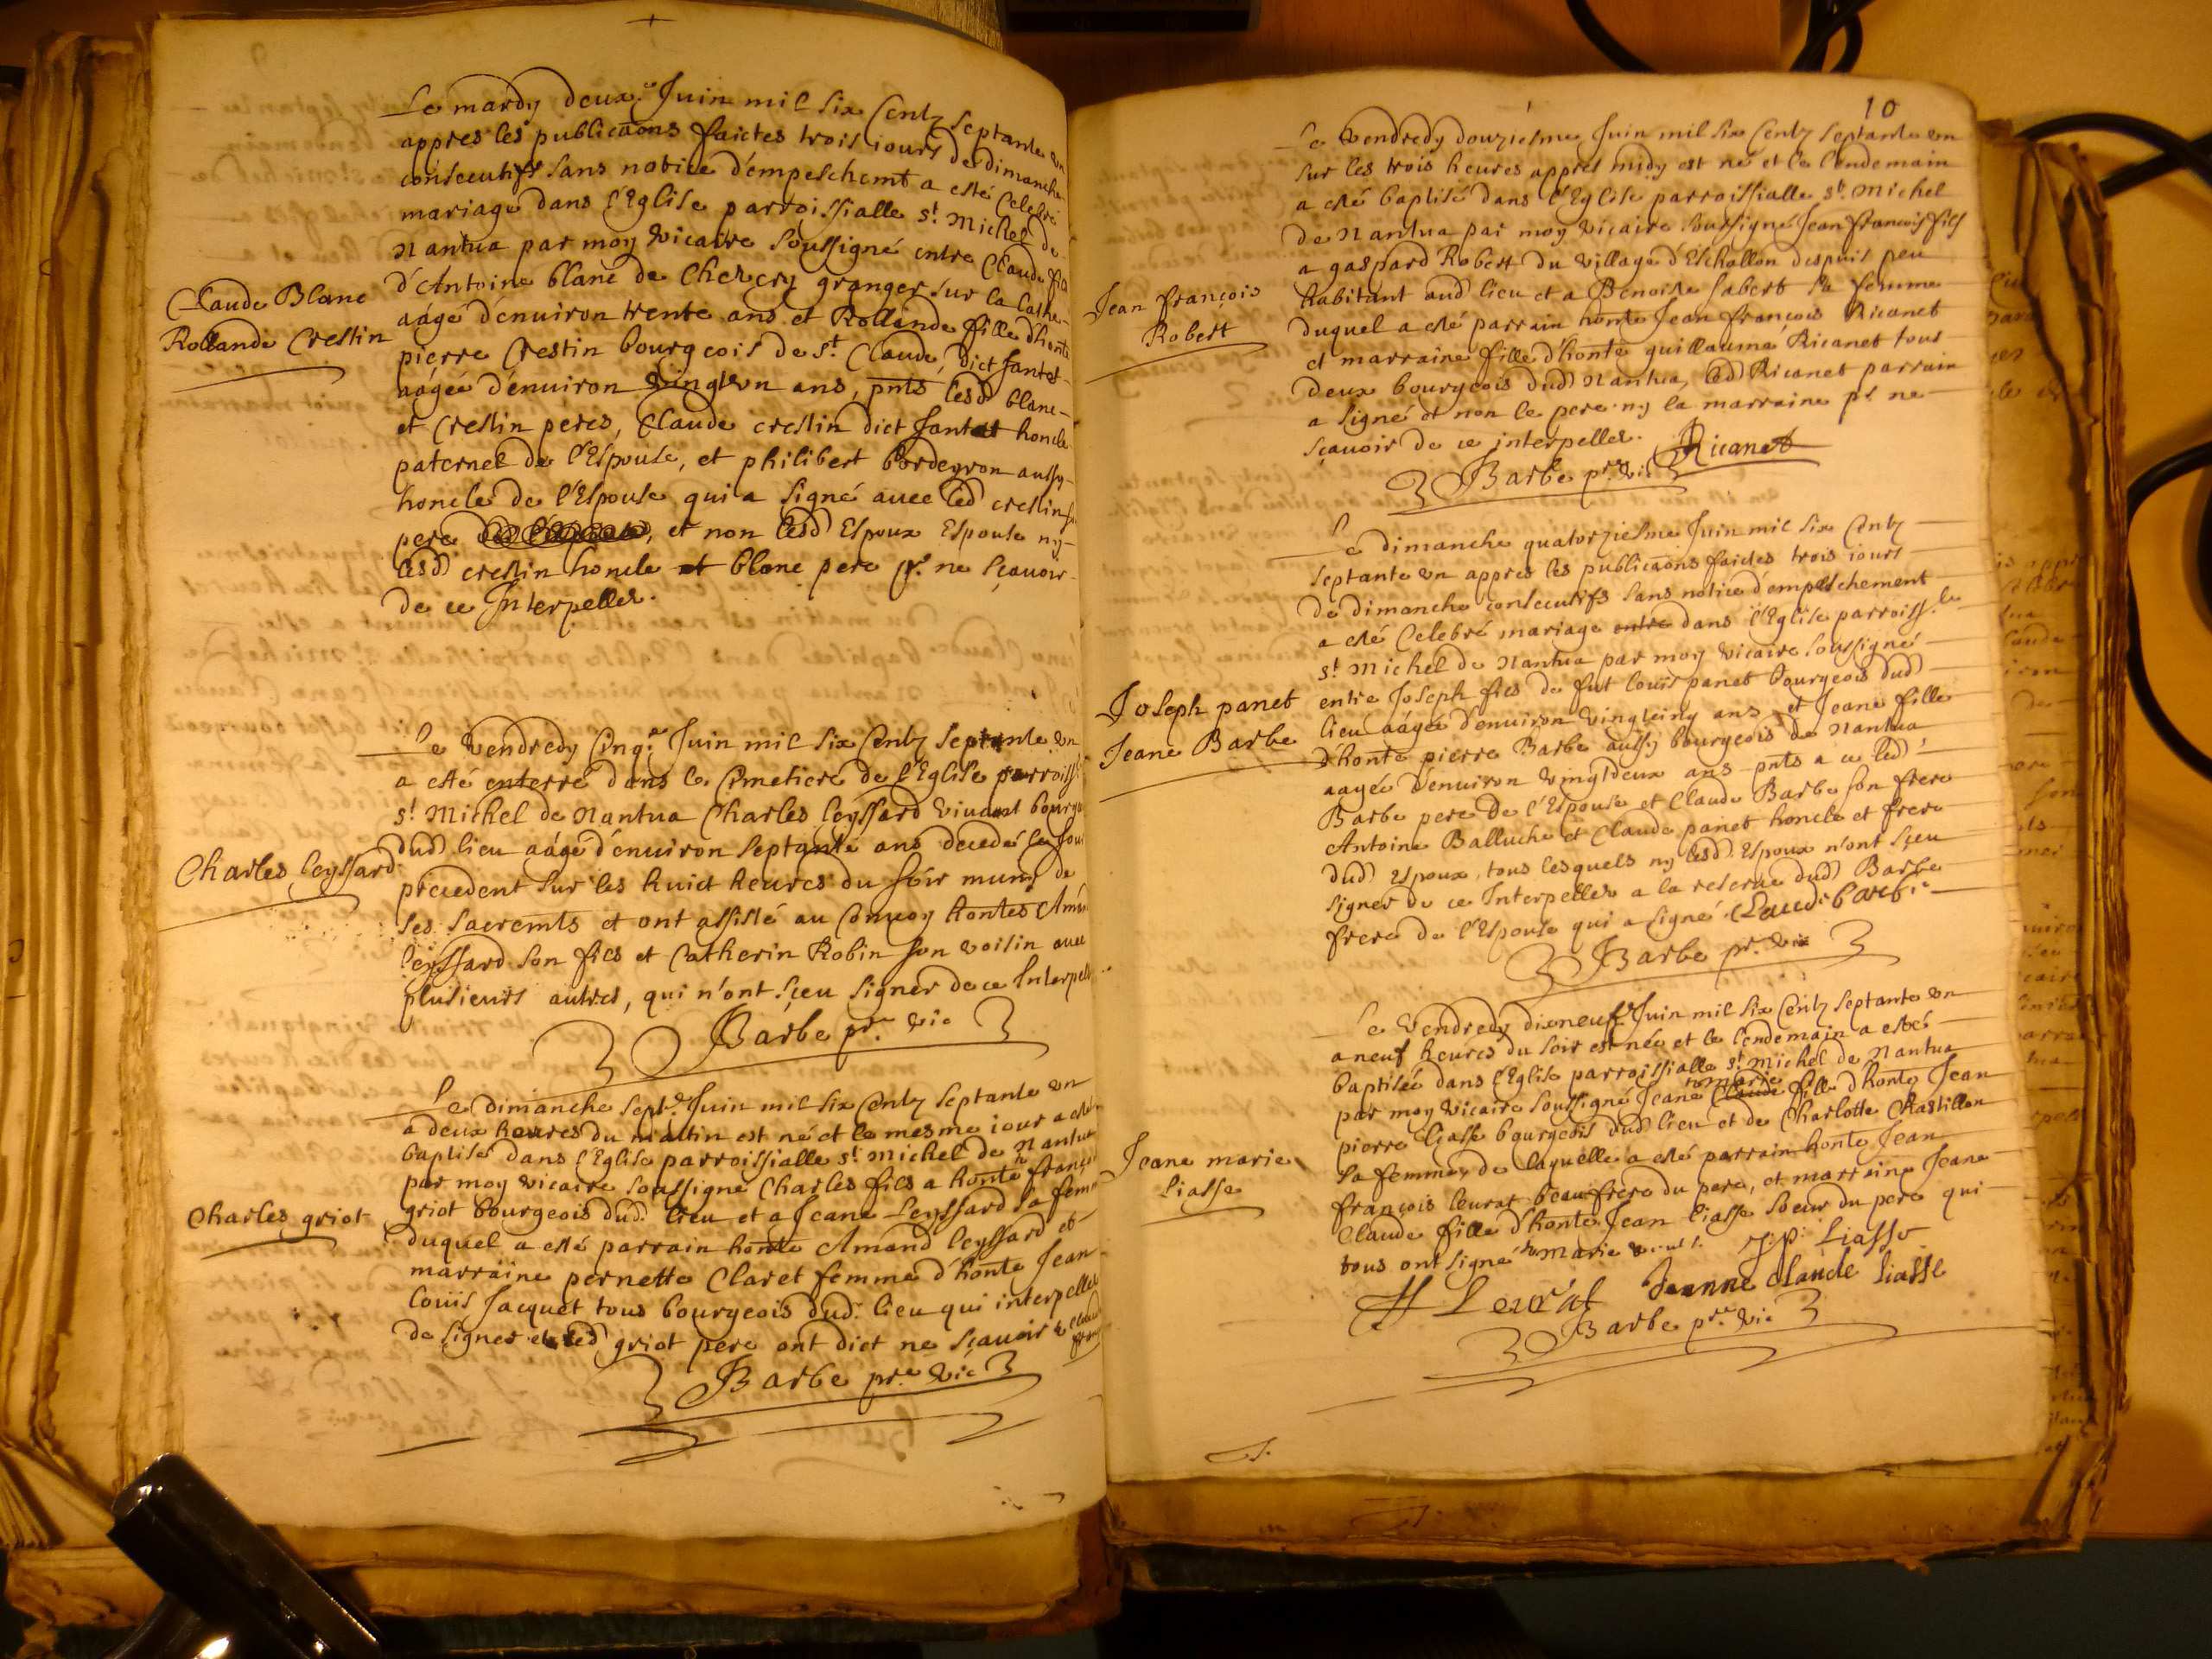 Le mardy deux.e Juin mil six Centz septante un
appres les publicaons faictes trois jours de dimanche
consecutifs sans notice d'empeschemt a esté Celebré
mariage dans l'Eglise parroissialle st. Michel de
Nantua par moy vicaire soussigné entre Claude fils
d'Antoine blanc de Chevery granger sur la Cathe-
aagé d'environ trente ans et Rollande fille d'honte
pierre Crestin bourgeois de st. Claude, dict Jantet
aagée d'environ vingt un ans, pnts lesd blanc
et Crestin peres, Claude crestin dict Jantet honcle
paternel de l'Espouse, et philibert bordeyron aussy
honcle de l'Espouse qui a signé avec led crestin
pere et non lesd Espoux Espouse ny
lesd crestin honcle et blanc pere pr. ne sçavoir
de ce Interpellez.
Claude Blanc
Rollande Crestin
Le Vendredy Cinq.e Juin mil six Centz septante un
a esté enterré dans le Cimetiere de l'Eglise parroiss.
st. Michel de Nantua Charles leyssard vivant bourgeois
dud lieu aagé d'environ septante ans decedé le jour
precedent sur les huict heures du soir muny de
ses sacremts et ont assisté au Convoy hontes Amand
leyssard son fils et Catherin Robin son voisin avec
plusieurs autres, qui n'ont sçeu signer de ce Interpell
Barbe pr.e vic
Charles leyssard
Le dimanche sept.e Juin mil six Centz septante un
a deux heures du mattin est né et le mesme jour a esté
baptisé dans l'Eglise parroissialle st. Michel de Nantua
par moy vicaire soussigné Charles fils a honte françois
griot bourgeois dud. lieu et a Jeane Leyssard sa femme
duquel a esté parrain honte Amand leyssard et
marraine pernette Claret femme d'honte Jean
Louis Jacquet tous bourgeois dud. lieu qui interpellez
de signer et led griot pere ont dict ne sçavoir
Barbe pr.e vic
Charles griot
10
Le Vendredy douziesme Juin mil six Centz septante un
sur les trois heures appres midy est né et le lendemain
a esté baptisé dans l'Eglise parroissialle st. Michel
de Nantua par moy vicaire soussigné Jean françois fils
a gaspard Robert du village d'Eschallon despuis peu
habitant aud lieu et a Benoiste Jabert sa femme
duquel a esté parrain honte Jean françois Ricanet
et marraine fille d'honte guillaume Ricanet tous
deux bourgeois dud Nantua, led Ricanet parrain
a signé et non le pere ny la marraine pr ne
sçavoir de ce interpellez. Ricanet
Barbe pr.e vic
Jean françois
Robert
Le dimanche quatorziesme Juin mil six Centz
septante un appres les publicaons faictes trois jours
de dimanche consecutifs sans notice d'empeschement
a esté Celebré mariage entre dans l'Eglise parroiss.le
st. Michel de Nantua par moy vicaire soussigné
entre Joseph fils de fut Louis panet bourgeois dud
lieu aagé d'environ vingt cinq ans et Jeane fille
d'honte pierre Barbe aussy bourgeois de Nantua
aagée d'environ vingt deux ans pnts a ce led
Barbe pere de l'Espouse et Claude Barbe son frere
Antoine Balluche et Claude panet honcle et frere
dud Espoux, tous lesquels ny lesd. Espoux n'ont sçeu
signer de ce Interpellez a la reserve dud Barbe
frere de l'Espouse qui a signé Claude barbe
Barbe pr.e vic
Joseph panet
Jeane Barbe
Le Vendredy dixneuf.e Juin mil six Centz septante un
a neuf heures du soir est née et le lendemain a esté
baptisée dans l'Eglise parroissialle st. Michel de Nantua
par moy vicaire soussigné Jeane Claude marie fille d'honte Jean
pierre liasse bourgeois dud lieu et de Charlotte Chastillon
sa femme, de laquelle a esté parrain honte Jean
françois leurat beaufrere du pere, et marraine Jeane
Claude fille d'honte Jean liasse soeur du pere qui
tous ont signé marie J.p. Liasse
Leurat Jeanne claude liasse
Barbe pr.e vic
Jeane marie
liasse